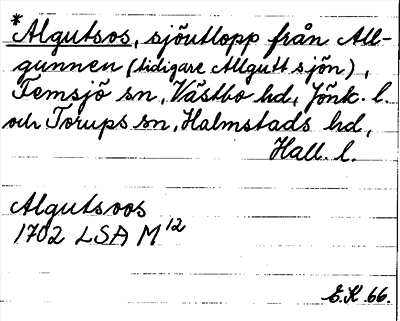 * Algutsos, sjöutlopp från All-
gunnen (tidigare Allgutt sjön),
Femsjö sn, Västbo hd, Jönk. l.
och Torups sn, Halmstads hd,
Hall. l.
Algutsoos
1702 LSA M 12
E.K. 66.